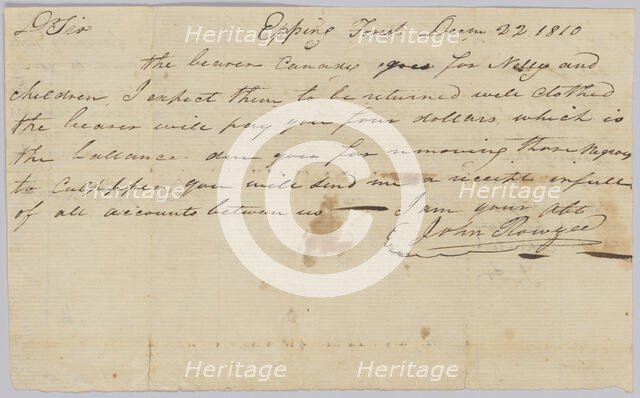 Dr Sir Epping Forest Decm 22 1810
the bearer Canady goes for Nelly and
children I expect them to be returned well clothed
the bearer will pay you four dollars which is
the ballance due you for removing those Negroes
to Culpepper you will send me a receipt in full
of all accounts between us — I am your obt
John Rowzee
Heritage
Heritage
Heritage
Heritage
Heritage
Heritage
Heritage
Heritage